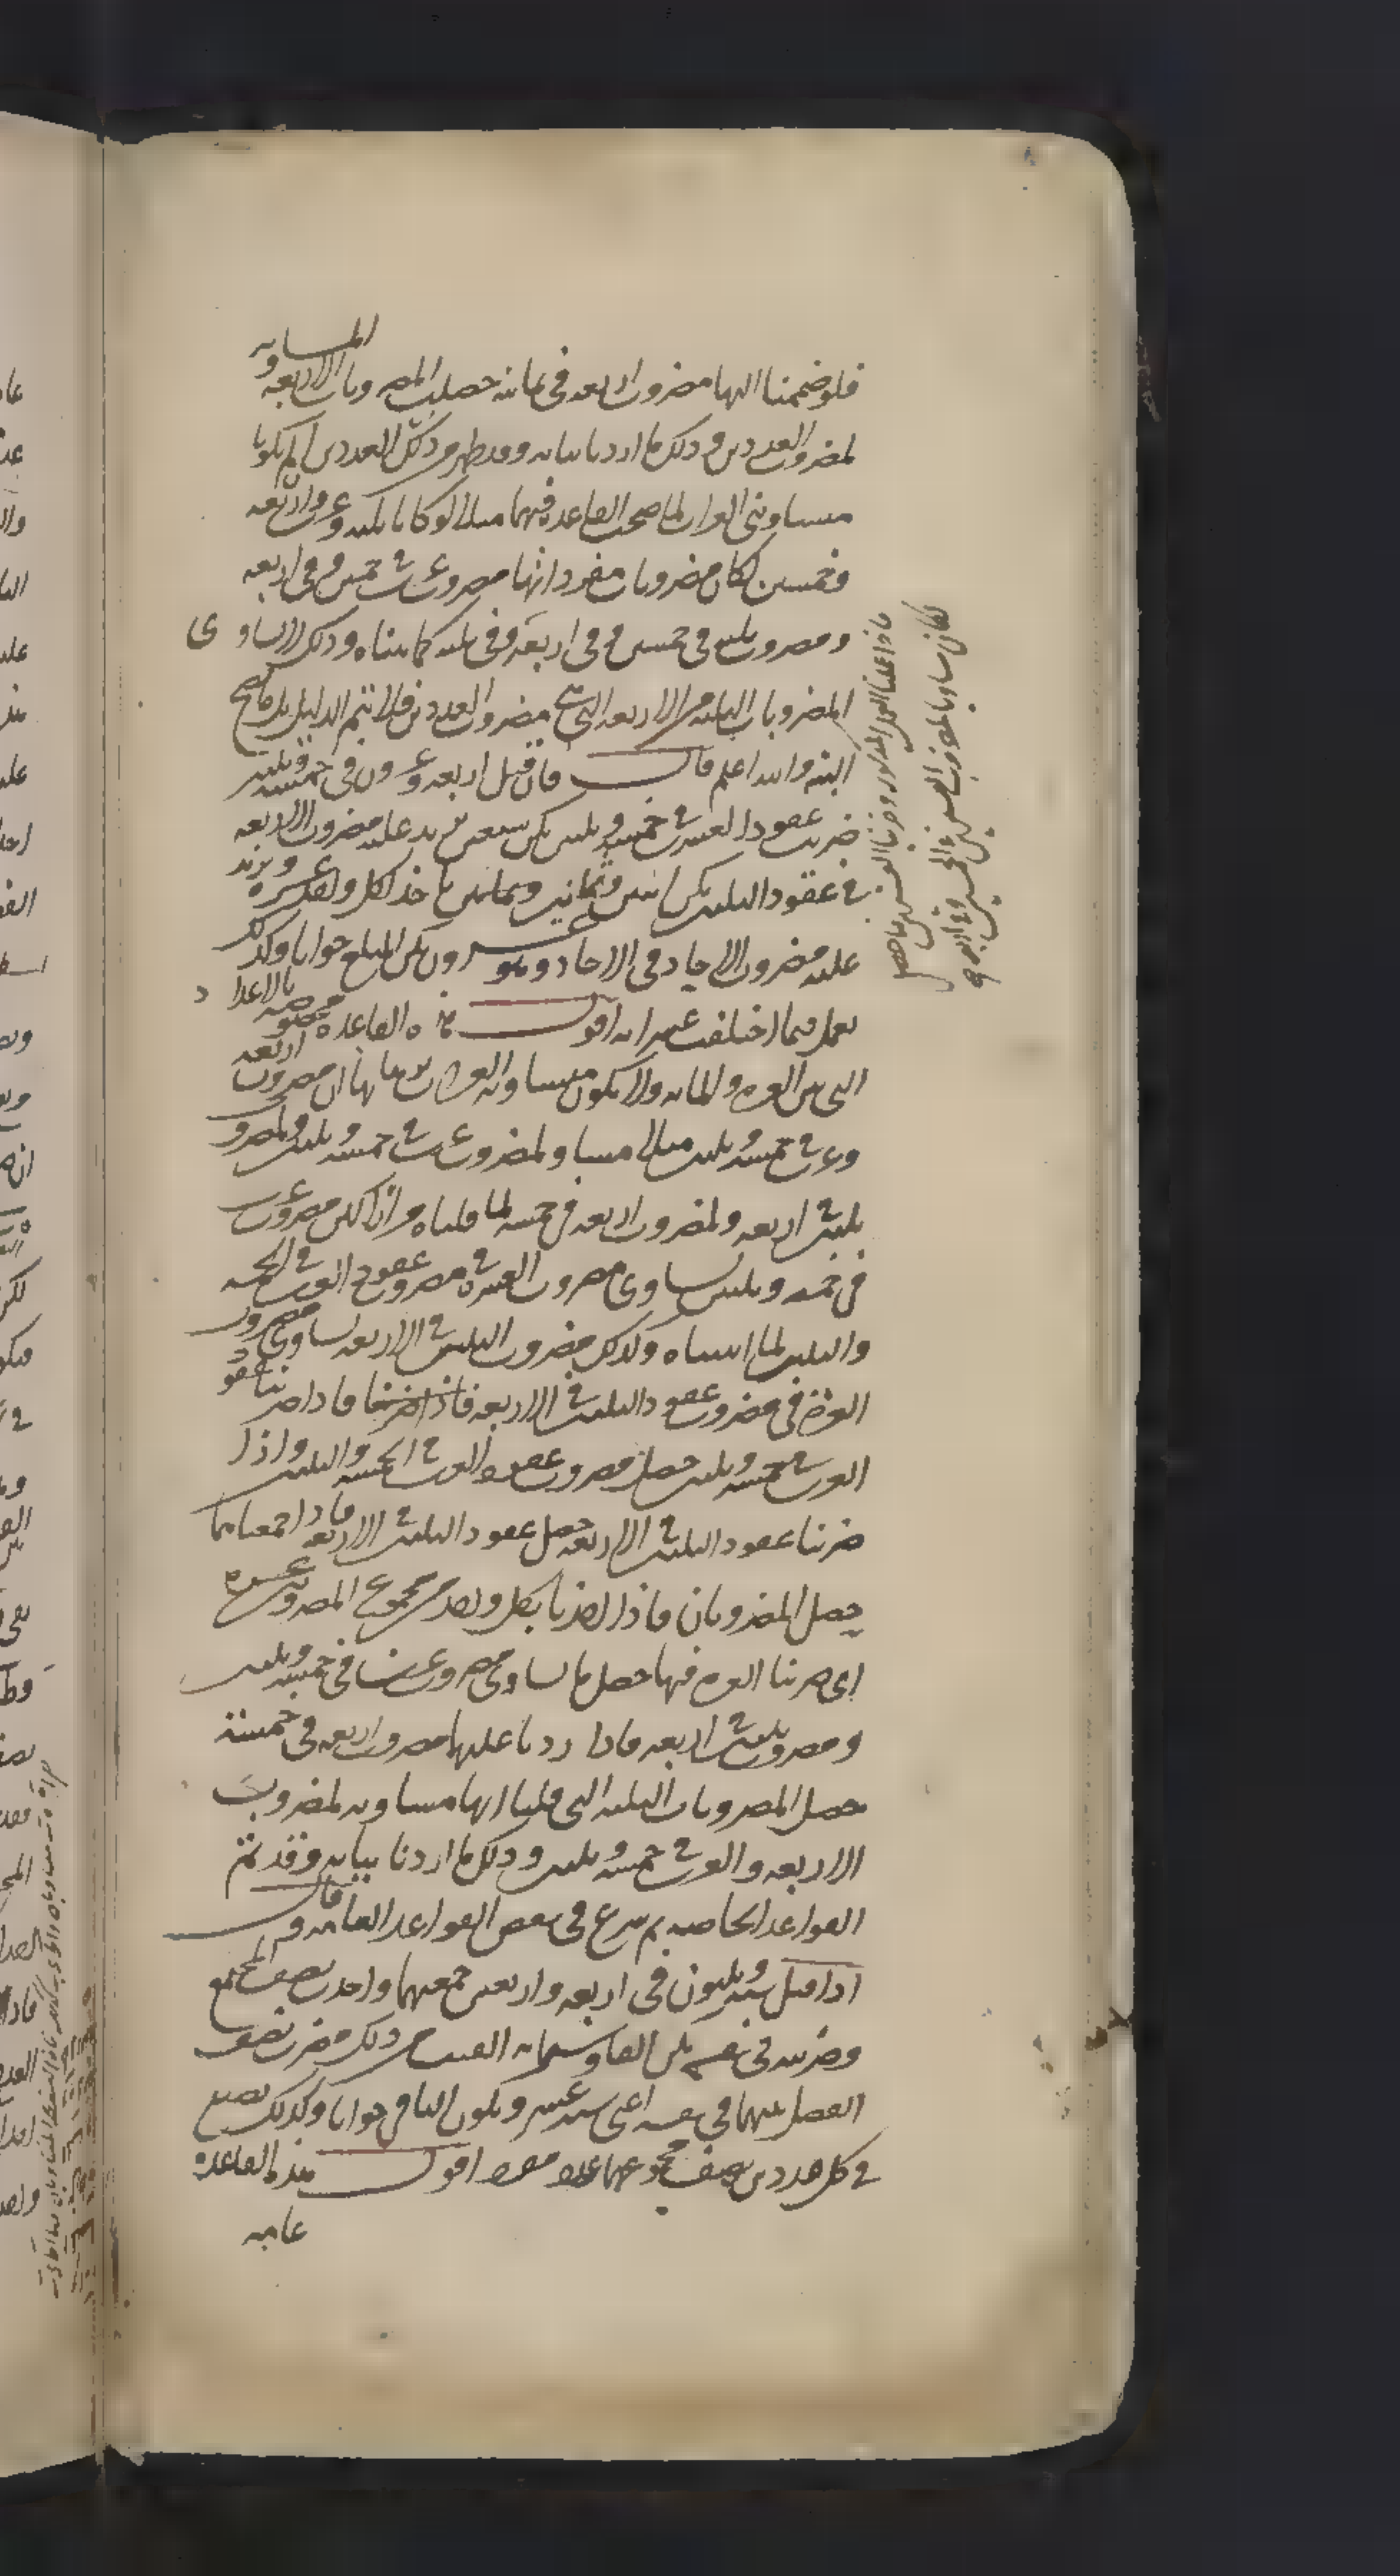 فلو ضممنا اليها مضروب اربعه فى ثمانيه حصلت المضروبات الاربعه المساويه
لمضروب العددين وذلك ما اردنا بيانه وقد ظهر من ذلك ان العددين لو لم يكونا
متساويى العشرات لما صحت القاعده فيهما مثلا لو كانا ثلثه وعشرين واربعه
وخمسين لكان مضروبات مفرداتهما مضروب عشرين فى خمسين وفى اربعه
ومضروب ثلثه فى خمسين وفى اربعه وفى ثلثه كما بيناه وذلك لا يساوى
المضروبات الثلثه من الاربعه التى هى مضروب العددين فلا يتم الدليل بل لا يصح
البته والله اعلم قال فان قيل اربعه وعشرون فى خمسه وثلثين
ضربت عقود العشرين فى خمسه وثلثين يكن سبعين تزيد عليه مضروب الاربعه
فى عقود الثلثين يكن اثنين وثمانين وثمانين تاخذ لكل واحد عشره وتزيد
عليه مضروب الاحاد فى الاحاد وهو عشرون يكن المبلغ جوابا وكذلك
يعمل فيما اختلفت عشراته اقول هذه القاعده مخصوصه بالاعداد
التى بين العشره والمائه ولا يكون متساويه العشرات برهانها ان مضروب اربعه
وعشرين فى خمسه وثلثين مثلا مساو لمضروب عشرين فى خمسه وثلثين ولمضروب
ثلثين فى اربعه ولمضروب اربعه فى خمسه لما قلناه مرارا لكن مضروب عشرين
فى خمسه وثلثين يساوى مضروب العشره فى مضروب عقود العشرين فى الخمسه
والثلثين لما اثبتناه وكذلك مضروب الثلثين فى الاربعه يساوى مضروب
العشره فى مضروب عقود الثلثين فى الاربعه فاذا ضربنا عقود
العشرين فى خمسه وثلثين حصل مضروب عقود العشرين فى الخمسه والثلثين واذا
ضربنا عقود الثلثين فى الاربعه حصل عقود الثلثين فى الاربعه فاذا جمعناهما
حصل المضروبان فاذا اخذنا بكل واحد من مجموع المضروبين عشره
اى ضربنا العشره فيها حصل ما يساوى مضروب عشرين فى خمسه وثلثين
ومضروب ثلثين فى اربعه فاذا زدنا عليها مضروب اربعه فى خمسه
حصل المضروبات الثلثه التى قلنا انها مساويه لمضروب
الاربعه والعشرين فى خمسه وثلثين وذلك ما اردنا بيانه وقد تم
القواعد الخاصه ثم شرع فى بعض القواعد العامه وقال
اذا قيل سته وثلثون فى اربعه واربعين جمعتهما واخذت نصف المجتمع
وضربته فى نفسه يكن الفا وستمائه القيت من ذلك مضروب نصف
الفضل بينهما فى نفسه اعنى سته عشر ويكون الباقى جوابا وكذلك تصنع
فى كل عددين نصف مجموعهما عدد مفرد اقول هذه القاعده
عامه